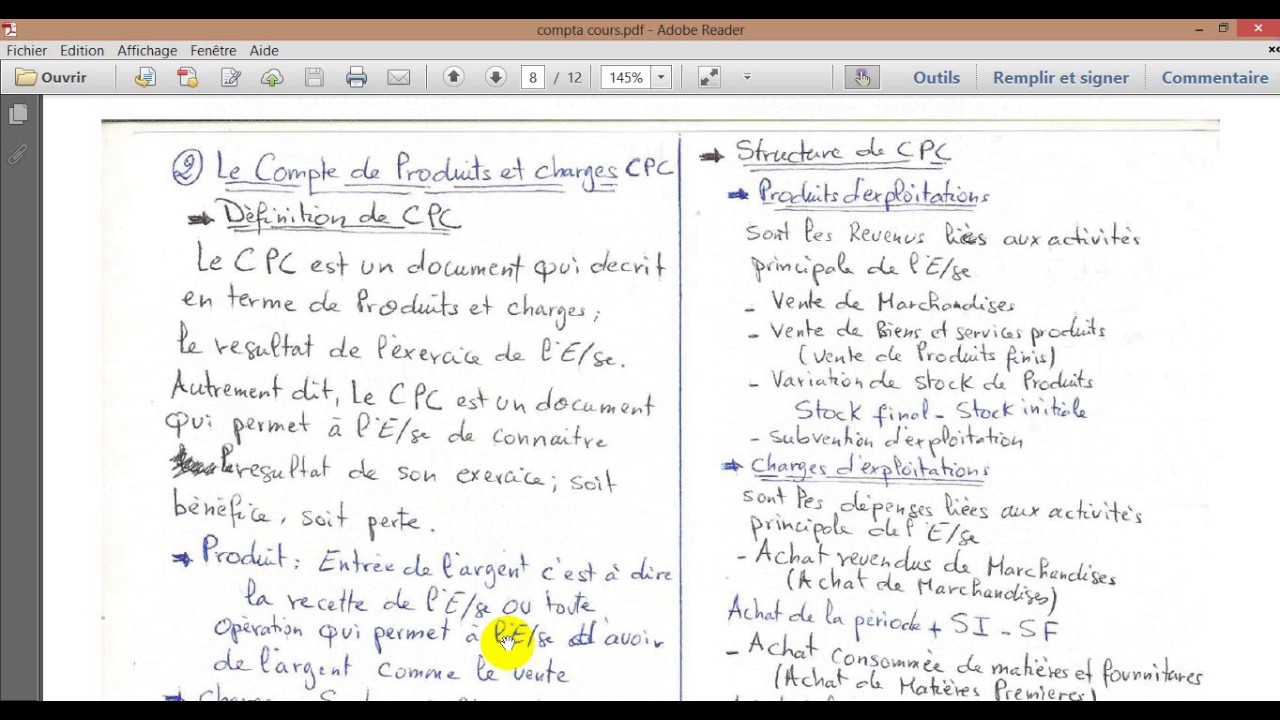 compta cours.pdf - Adobe Reader
Fichier Edition Affichage Fenêtre Aide
Ouvrir 8 / 12 145% Outils Remplir et signer Commentaire
② Le Compte de Produits et charges CPC
➡ Dèfinition de CPC
Le CPC est un document qui decrit
en terme de Produits et charges ;
le resultat de l'èxercice de l'E/se.
Autrement dit, Le CPC est un document
qui permet à l'E/se de connaitre
le resultat de son exercice ; soit
bènèfice, soit perte.
➡ Produit : Entrèe de l'argent c'est à dire
la recette de l'E/se ou toute
opèration qui permet à l'E/se d'avoir
de l'argent comme le vente
➡ Structure de CPC
➡ Produits d'exploitations
sont les Revenus lièes aux activitès
principale de l'E/se
- Vente de Marchandises
- Vente de Biens et services produits
(vente de Produits finis)
- Variation de stock de Produits
Stock final - Stock initiale
- subvention d'exploitation
➡ Charges d'exploitations
sont les dèpenses lièes aux activitès
principale de l'E/se
- Achat revendus de Marchandises
(Achat de Marchandises)
Achat de la pèriode + SI - SF
- Achat consommèe de matières et fournitures
(Achat de Matières Premieres)